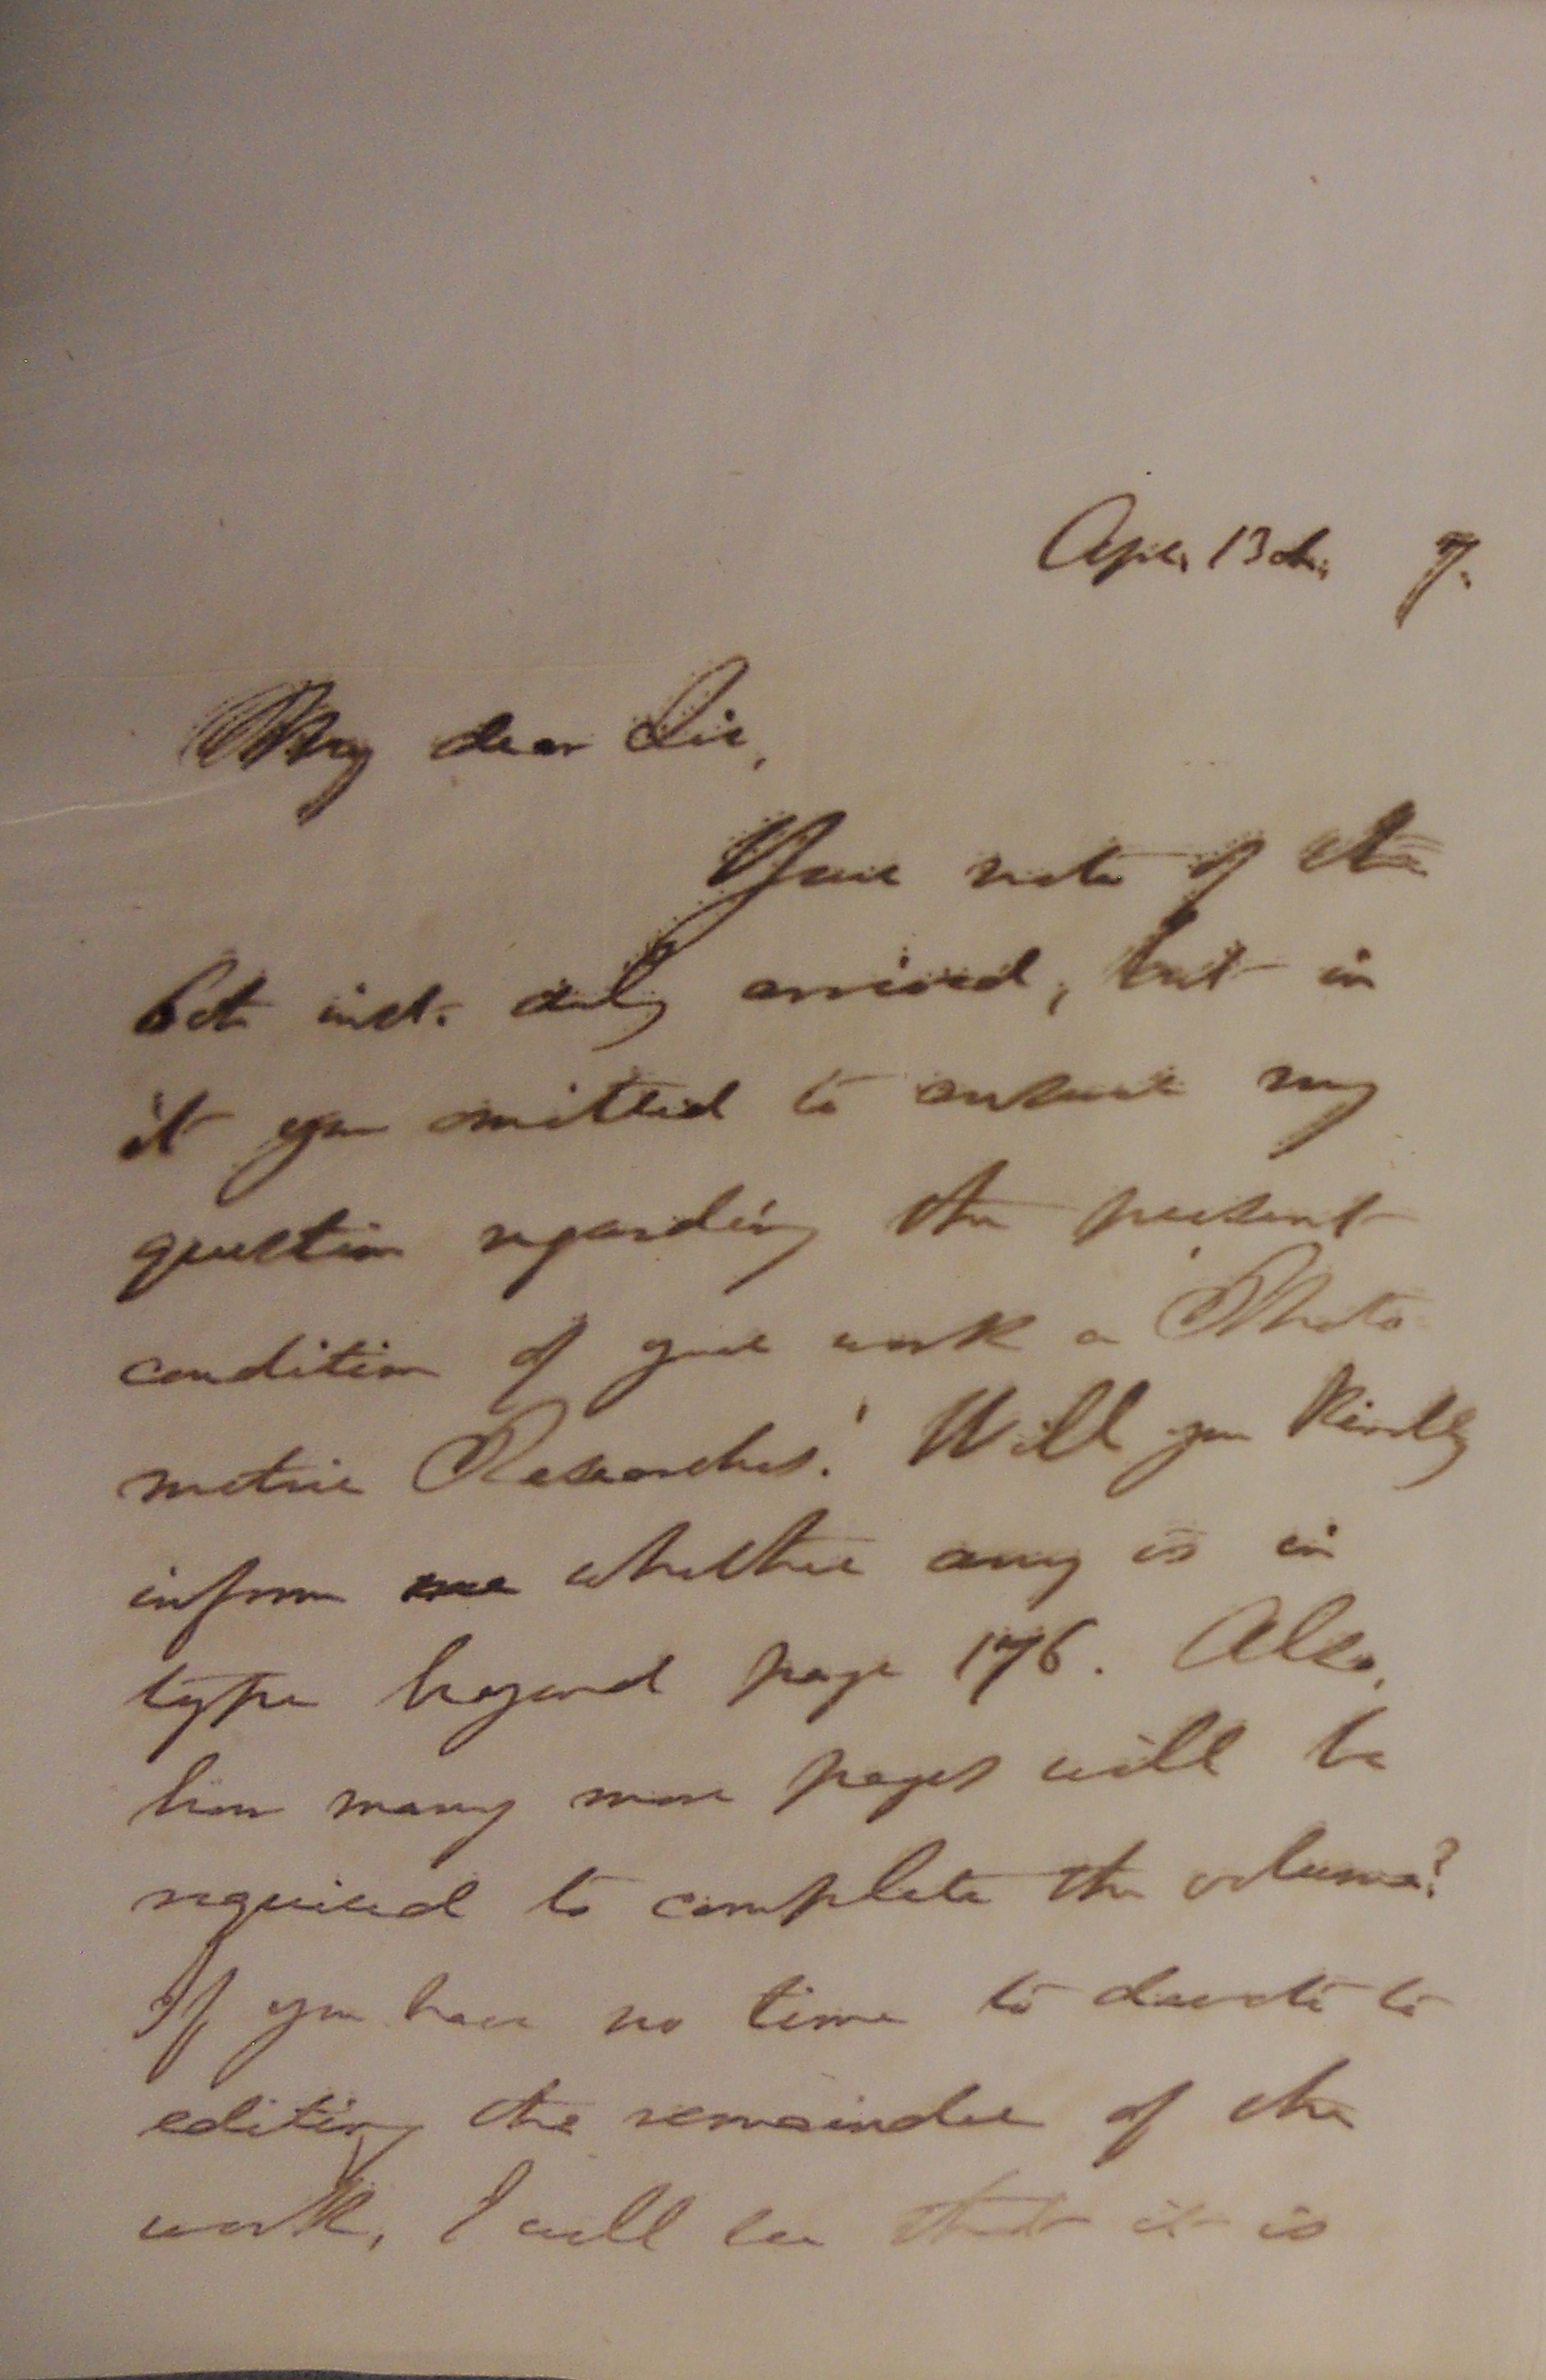 Apr. 13th, 7.
My dear Sir,
Your note of the
6th inst. duly arrived, but in
it you omitted to answer my
question regarding the present
condition of your work on 'Photo-
metric Researches.' Will you kindly
inform me whether any is in
type beyond page 176. Also,
how many more pages will be
required to complete the volume?
If you have no time to devote to
editing the remainder of the
work, I will see that it is